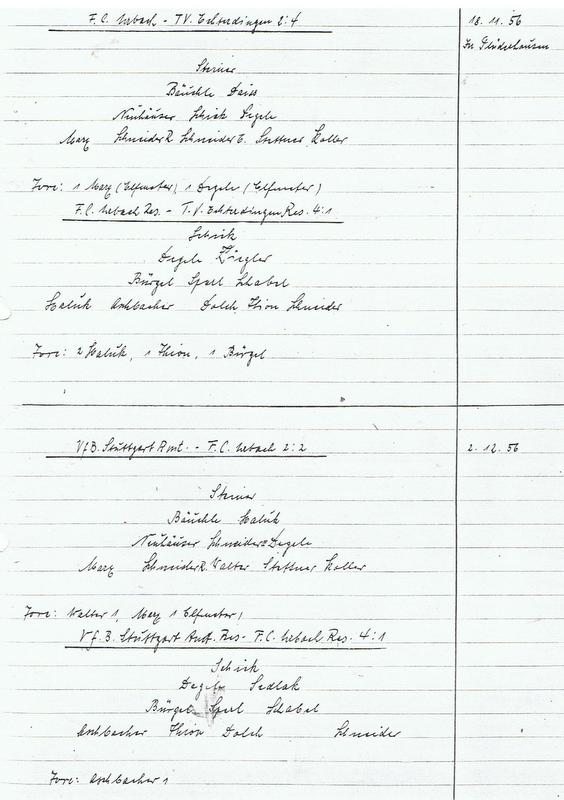 F.C. Urbach - T.V. Echterdingen 2:4
18. 11. 56
In Plüderhausen
Steiner
Bäuchle Daiss
Neuhäuser Schick Degele
Marx Schneider R. Schneider E. Stettner Koller
Tore: 1 Marx (Elfmeter) 1 Degele (Elfmeter)
F.C. Urbach Res. - T.V. Echterdingen Res. 4:1
Schick
Degele Ziegler
Bürgel Sperl Schabel
Haluk Aschbacher Dolch Thion Schneider
Tore: 2 Haluk, 1 Thion, 1 Bürgel
VfB. Stuttgart Amt. - F.C. Urbach 2:2
2. 12. 56
Steiner
Bäuchle Haluk
Neuhäuser Schneider E Degele
Marx Schneider R. Walter Stettner Koller
Tore: Walter 1, Marx 1 Elfmeter)
V.f.B. Stuttgart Amt. Res - F.C. Urbach Res. 4:1
Schick
Degele Sedlak
Bürgel Sperl Schabel
Aschbacher Thion Dolch Schneider
Tore: Aschbacher 1